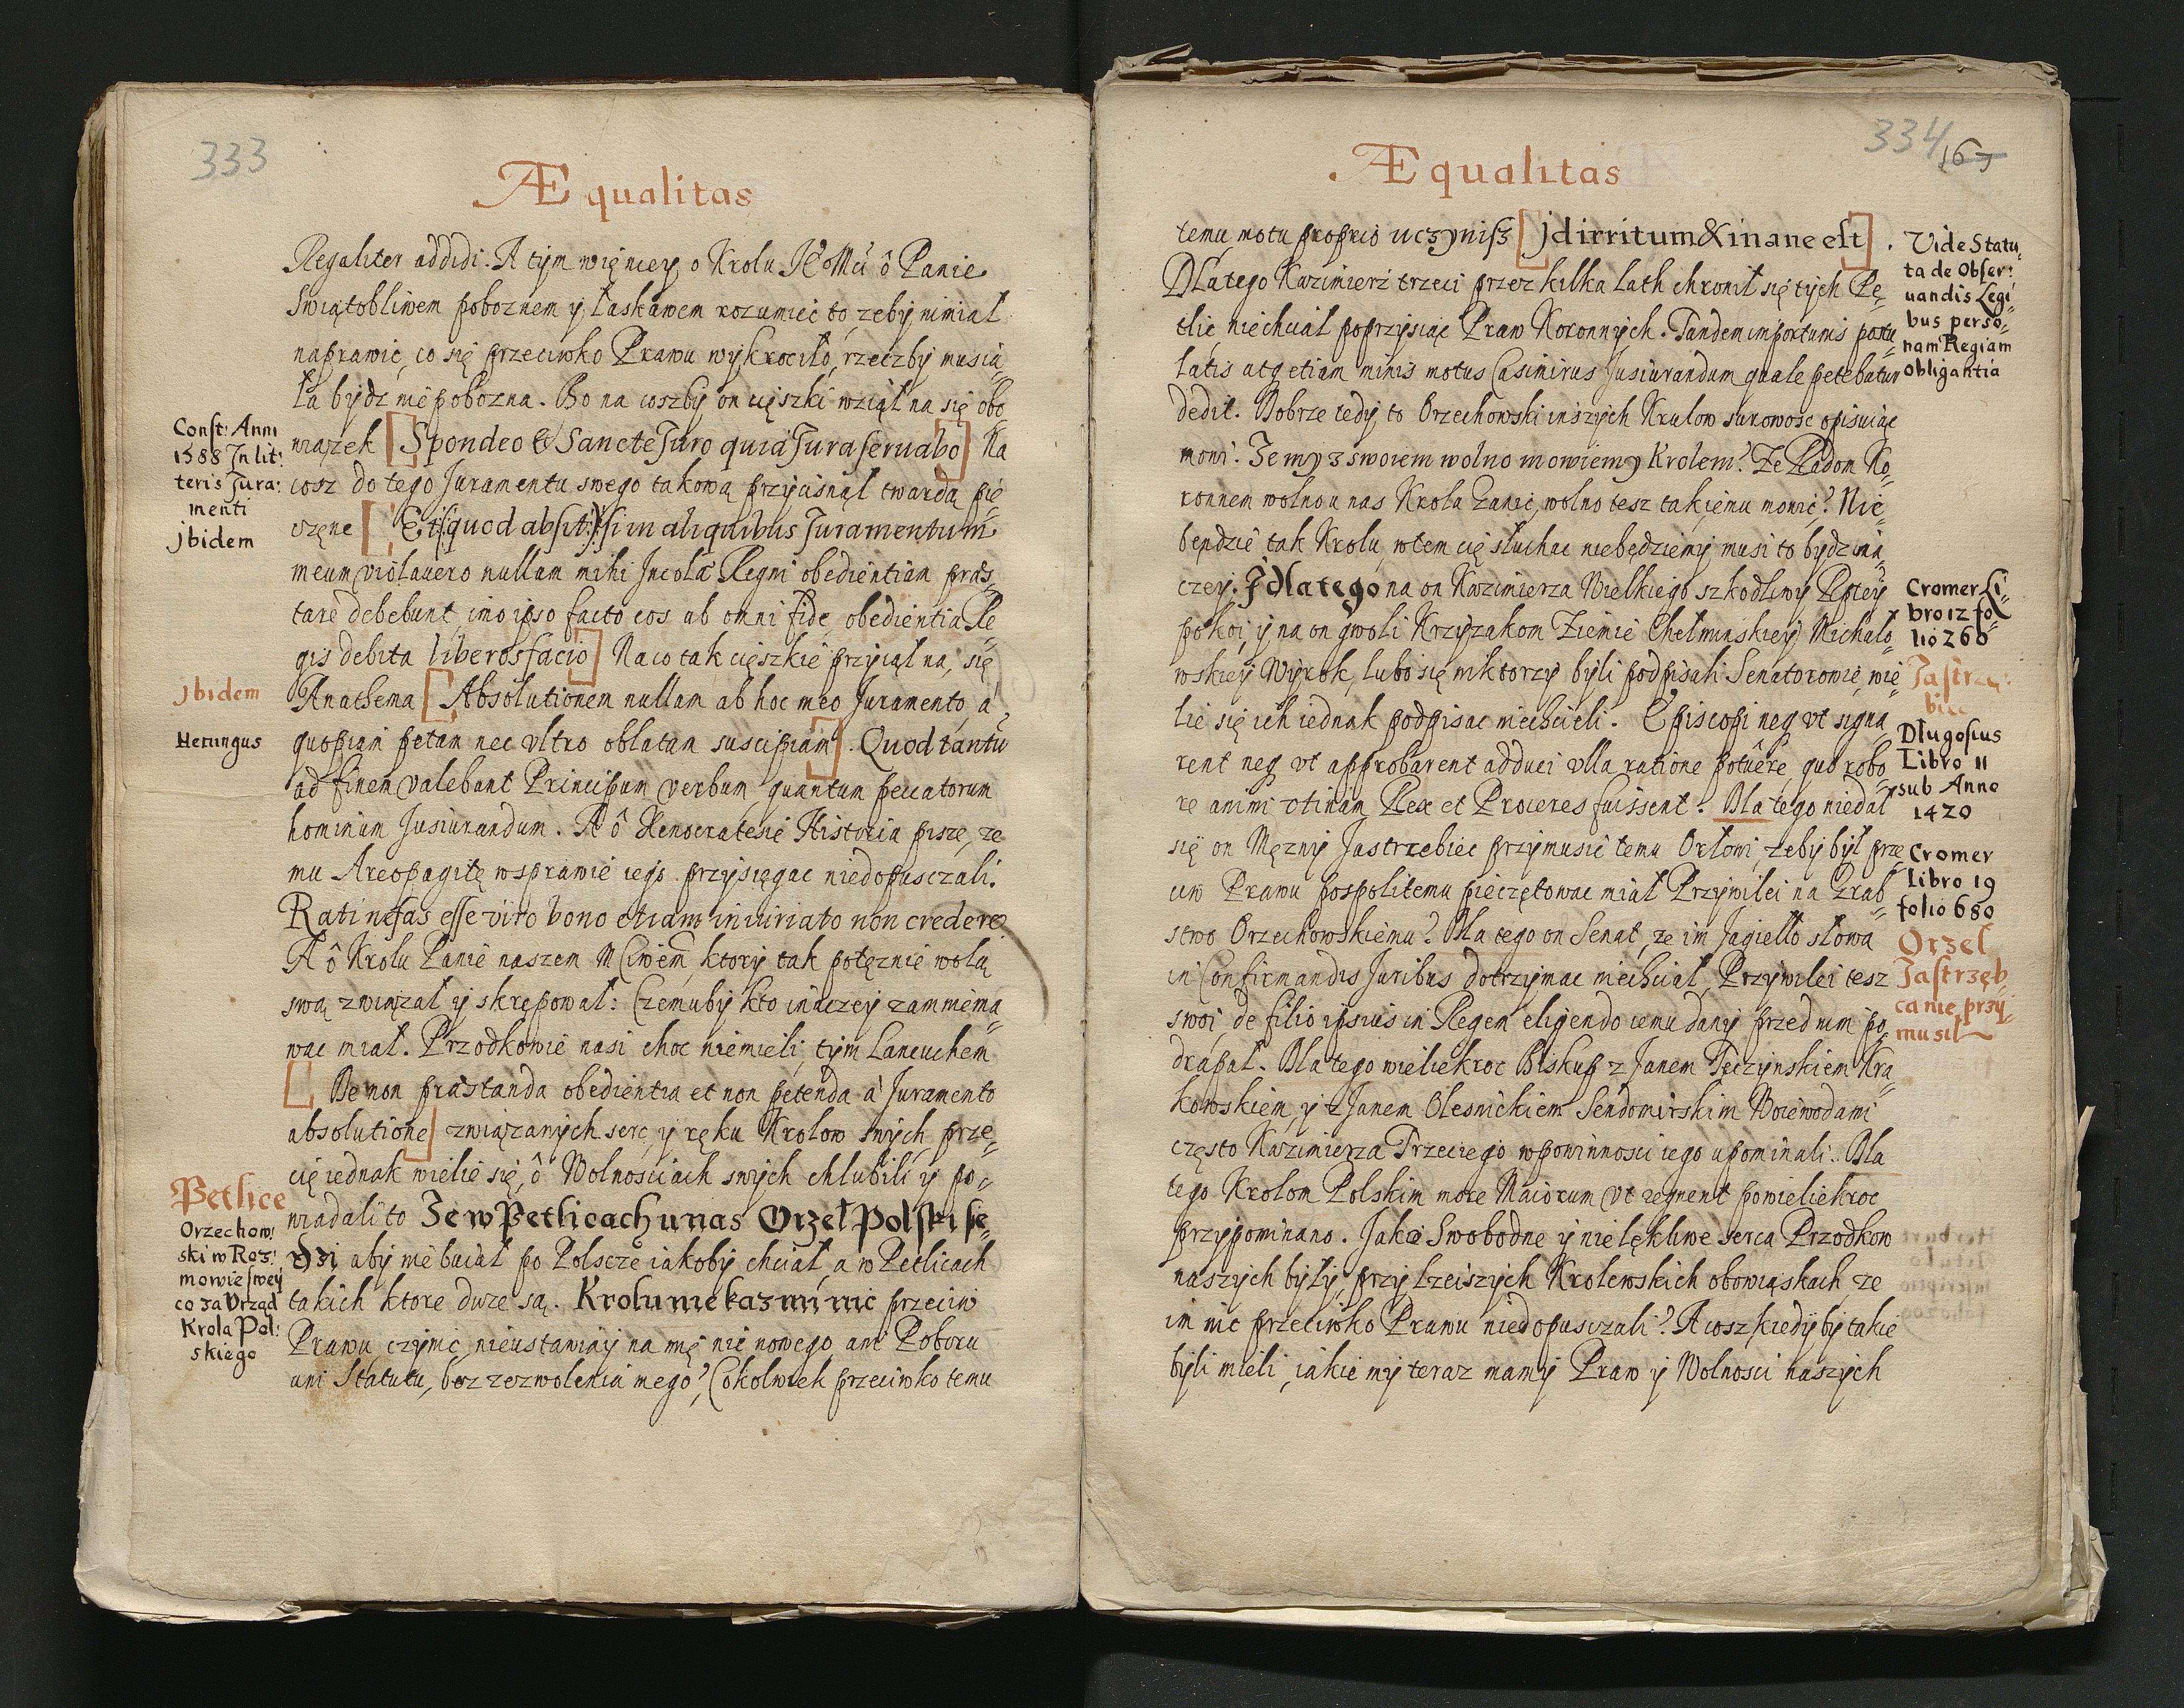 333
Æqualitas
Regaliter addidi. A tym więncey o Krolu ô Panie
Swiątobliwem poboznem y łaskawem rozumiec to zeby nimiał
naprawic, co się przeciwko Prawu wykrociło, rzeczby musia„
ła bydz niepobozna. Bo na coszby on cięszki wziął na się obo
wiązek [Spondeo & Sancte Juro quia Jura servabo] Na
cosz do tego Juramentu swego takową przycisnął twardą pie
częne [Et (quod absit:) si in aliquibus Juramentum
meum violavero nullam mihi Incolæ Regni obedientiam præs„
tare debebunt, imo ipso facto eos ab omni fide, obedientia Re„
gis debita liberos facio] Naco tak cięszkie przyiął na się
Anathema [Absolutionem nullam ab hoc meo Juramento, à
quopiam petam nec vltro oblatam suscipiam]. Quod tantũ
ad finem valebant Principum verbum, quantum peccatorum
hominum Jusiurandum. A ô Xenocratesie Historia pisze, ze
mu Areopagitę wsprawie iego przysięgac niedopusczali.
Rati nefas esse viro bono etiam iniuriato non credere
A ô Krolu Panie naszem ktory tak potęznie wolą
swą związał y skrępował: Czemuby kto inaczey zammema„
wac miał. Przodkowie nasi choc niemieli, tym Lancuchem
[De non præstanda obedientia et non petenda à Juramento
absolutione] związanych serc, y ręku Krolow swych prze„
cię iednak wielie się, ô Wolnosciach swych chlubili y po„
wiadali to Ze w Petlicach u nas Orzeł Polski sie„
dzi aby nie buiał po Polscze iakoby chciał, a w Petlicach
takich ktore duze są. Krolu nie kaz mi nic przeciw
Prawu czynic, nieustawiay na mię nic nowego ani Poboru
ani Statutu, bez zezwolenia mego? Cokolwiek przeciwko temu
Const: Anni
1588 In lit:
teris Jura:
menti
jbidem
jbidem
Heningus
Petlice
Orzechow:
ski w Roz:
mowie swey
co za Vrząd
Krola Pol:
skiego
334
167
Æqualitas
temu motu proprio uczynisz [jd irritum & inane est].
Dlatego Kazimierz trzeci przez kilka lath chronił się tych Pe„
tlic, niechciał poprzysiąc Praw Koronnych. Tandem importunis postu„
latis atq etiam minis motus Casimirus Jusiurandum quale petebatur
dedit. Dobrze tedy to Orzechowski inszych Krulow surowosc opisuiąc
mowi. Ze my z swoiem wolno mowiemy Krolem? Ze Radom Ko„
ronnem wolno u nas Krola Ganic, wolno tesz takiemu mowic? Nie„
będzie tak Krolu, wtem cię słuchac niebędziemy, musi to bydz ina„
czey. J dlatego na on Kazimierza Wielkiego szkodliwy Rptey
pokoi y na on gwoli Krzyzakom Ziemie Chełminskiey Michało„
wskiey Wyrok, lubo się niktorzy byli podpisali Senatorowie, wie„
lie się ich iednak podpisac niechcieli. Episcopi neq vt signa„
rent neq vt approbarent adduci vlla ratione potuêre, quo robo„
re animi vtinam Rex et Proceres fuissent. Dla tego niedał
się on Męzny Jastrzebiec przymusic temu Orłowi, zeby był prze
ciw Prawu pospolitemu pieczętowac miał Przywilei na Grab„
stwo Orzechowskiemu? Dla tego on Senat, ze im Jagiełło słowa
in Confirmandis Juribus dotrzymac niechciał, Przywilei tesz
swoi de filio ipsius in Regem eligendo iemu dany przed nim po
drapał. Dla tego wieliekroc Biskup z Janem Tęczynskiem Kra„
kowskiem, y z Janem Olesnickiem Sendomirskim Woiewodami
często Kazimierza Trzeciego wpowinnosci iego upominali. Dla
tego Krolom Polskim more Maiorum vt regnent powieliekroc
przypominano. Jakie Swobodne y nielękliwe serca Przodkow
naszych były, przy lzeiszych Krolewskich obowiąskach, ze
im nic przeciwko Prawu niedopusczali? A cosz kiedyby takie
byli mieli, iakie my teraz mamy Praw y Wolnosci naszych
Vide Statu„
ta de Obser:
uandis Legi„
bus perso„
nam Regiam
obligantia
Cromer Li„
bro 12 fo„
lio 260
Jastrzę:
biec
Długosius
Libro 11
sub Anno
1420
Cromer
Libro 19
folio 680
Orzel
Jastrzęb„
ca nie przy„
musił